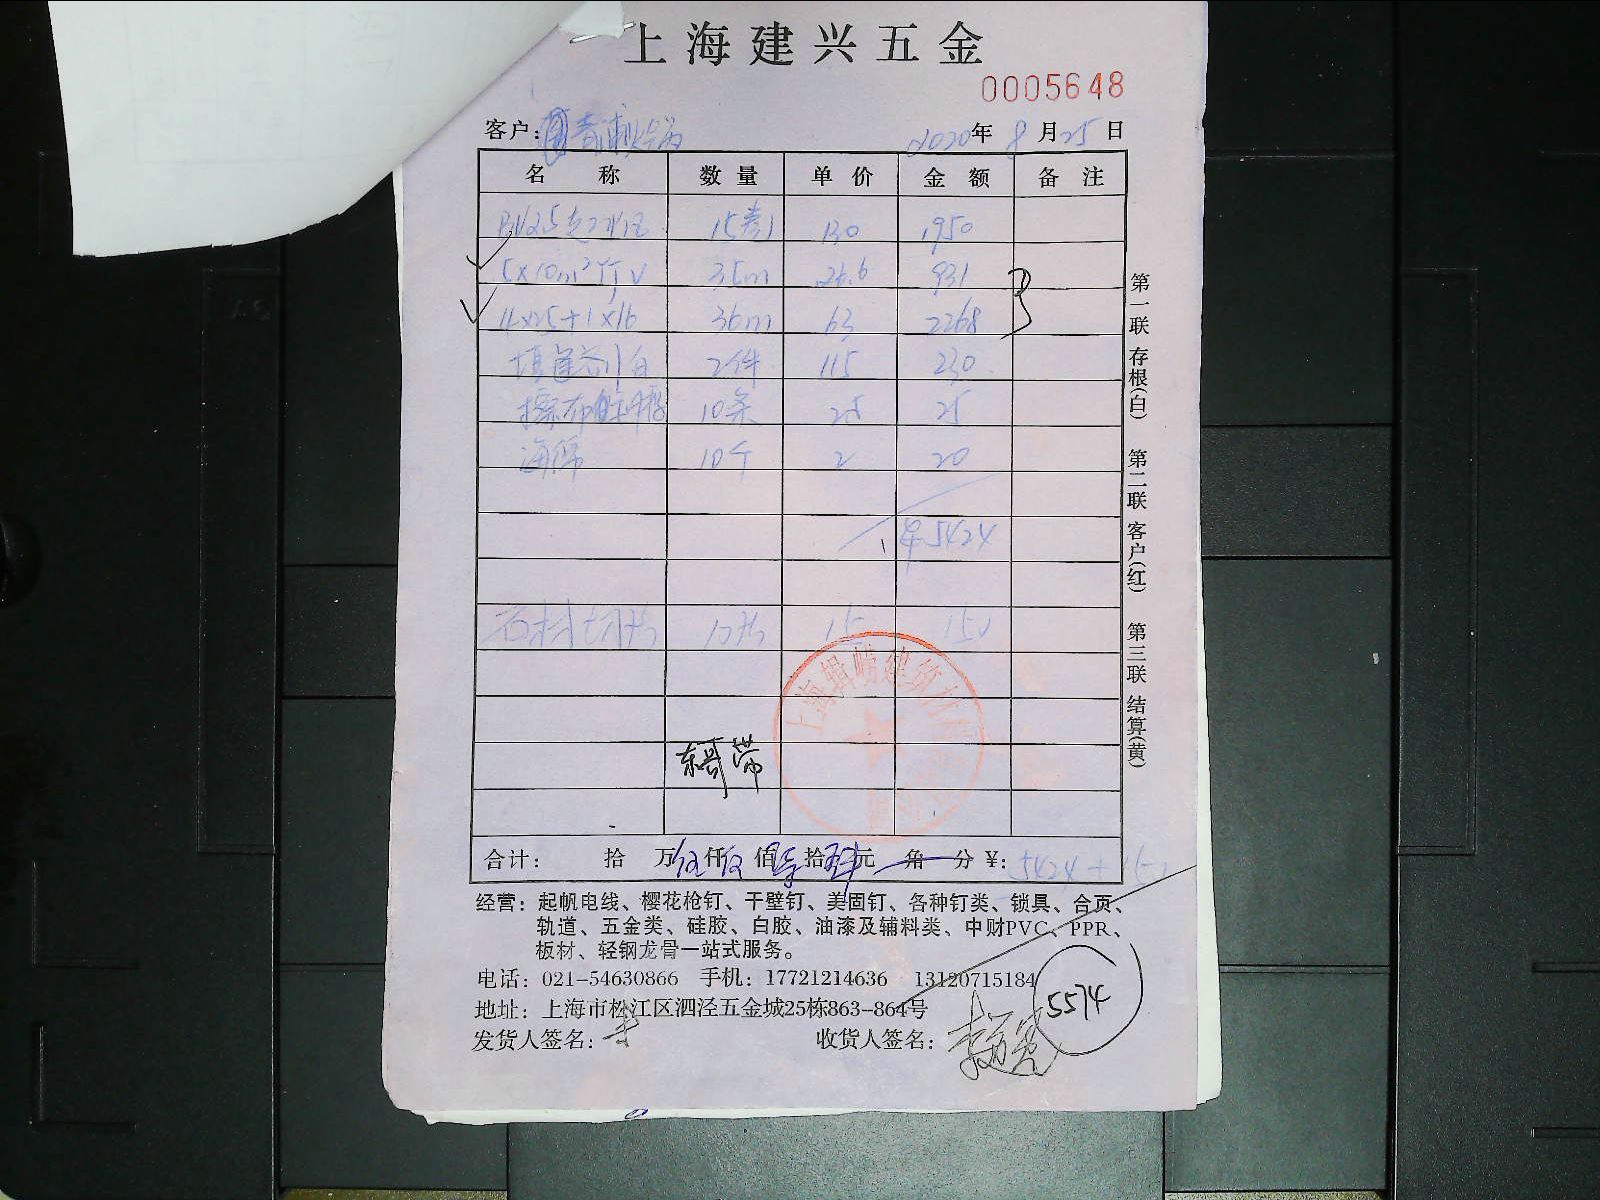 上海建兴五金
0005648
客户: 2020年 8月25日
名 称 数 量 单 价 金 额 备 注
15卷 130 1950
5×10m² YJV 35m 26.6 931
4×25+1×16 36m 63 2268
2件 115 230
擦布 10条 2.5 25
海绵 10个 2 20
5424
石材切片 10片 15 150
合计: 拾 万伍仟伍佰 拾肆元 角 分¥: 5424+150
经营: 起帆电线、樱花枪钉、干壁钉、美固钉、各种钉类、锁具、合页、
轨道、五金类、硅胶、白胶、油漆及辅料类、中财PVC、PPR、
板材、轻钢龙骨一站式服务。
电话: 021-54630866 手机: 17721214636 13120715184
5574
地址: 上海市松江区泗泾五金城25栋863-864号
发货人签名: 收货人签名:
第一联 存根(白) 第二联 客户(红) 第三联 结算(黄)